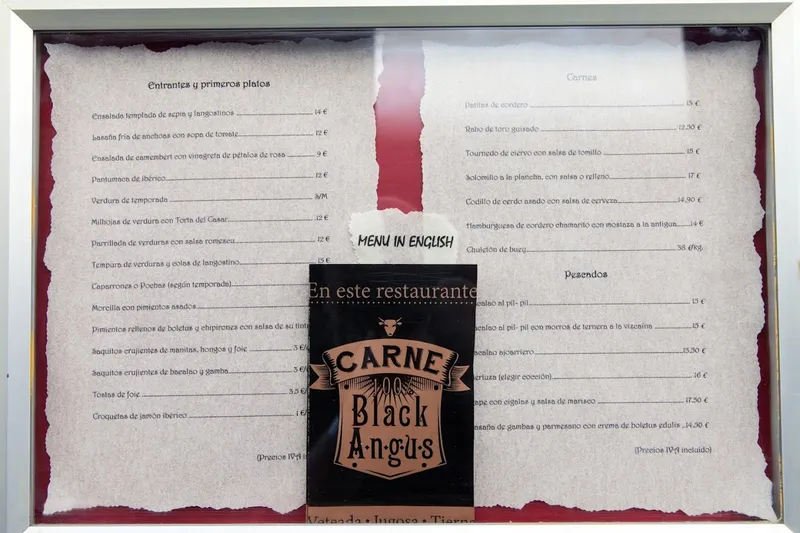 Entrantes y primeros platos
Ensalada templada de sepia y langostinos 14 €
Lasaña fría de anchoas con sopa de tomate 12 €
Ensalada de camembert con vinagreta de pétalos de rosa 9 €
Pantumaca de ibérico 12 €
Verdura de temporada S/M
Milhojas de verdura con Torta del Casar 12 €
Parrillada de verduras con salsa romescu 12 €
Tempura de verduras y colas de langostino 13 €
Caparrones o Pochas (según temporada)
Morcilla con pimientos asados
Pimientos rellenos de boletus y chipirones con salsa de su tint
Saquitos crujientes de manitas, hongos y foie 3 €/
Saquitos crujientes de bacalao y gamba 3 €/
Tostas de foie 3,5 €/
Croquetas de jamón ibérico 1 €/
(Precios IVA in
MENU IN ENGLISH
En este restaurante
CARNE
Black
Angus
Veteada • Jugosa • Tierna
Carnes
Patitas de cordero 15 €
Rabo de toro guisado 12,50 €
Tournedo de ciervo con salsa de tomillo 15 €
Solomillo a la plancha, con salsa o relleno 17 €
Codillo de cerdo asado con salsa de cerveza 14,90 €
Hamburguesa de cordero chamarito con mostaza a la antigua 14 €
Chuletón de buey 38 €/kg.
Pescados
acalao al pil- pil 15 €
acalao al pil- pil con morros de ternera a la vizcaína 15 €
acalao ajoarriero 13,50 €
erluza (elegir cocción) 16 €
ape con cigalas y salsa de marisco 17,50 €
asaña de gambas y parmesano con crema de boletus edulis 14,50 €
(Precios IVA incluido)